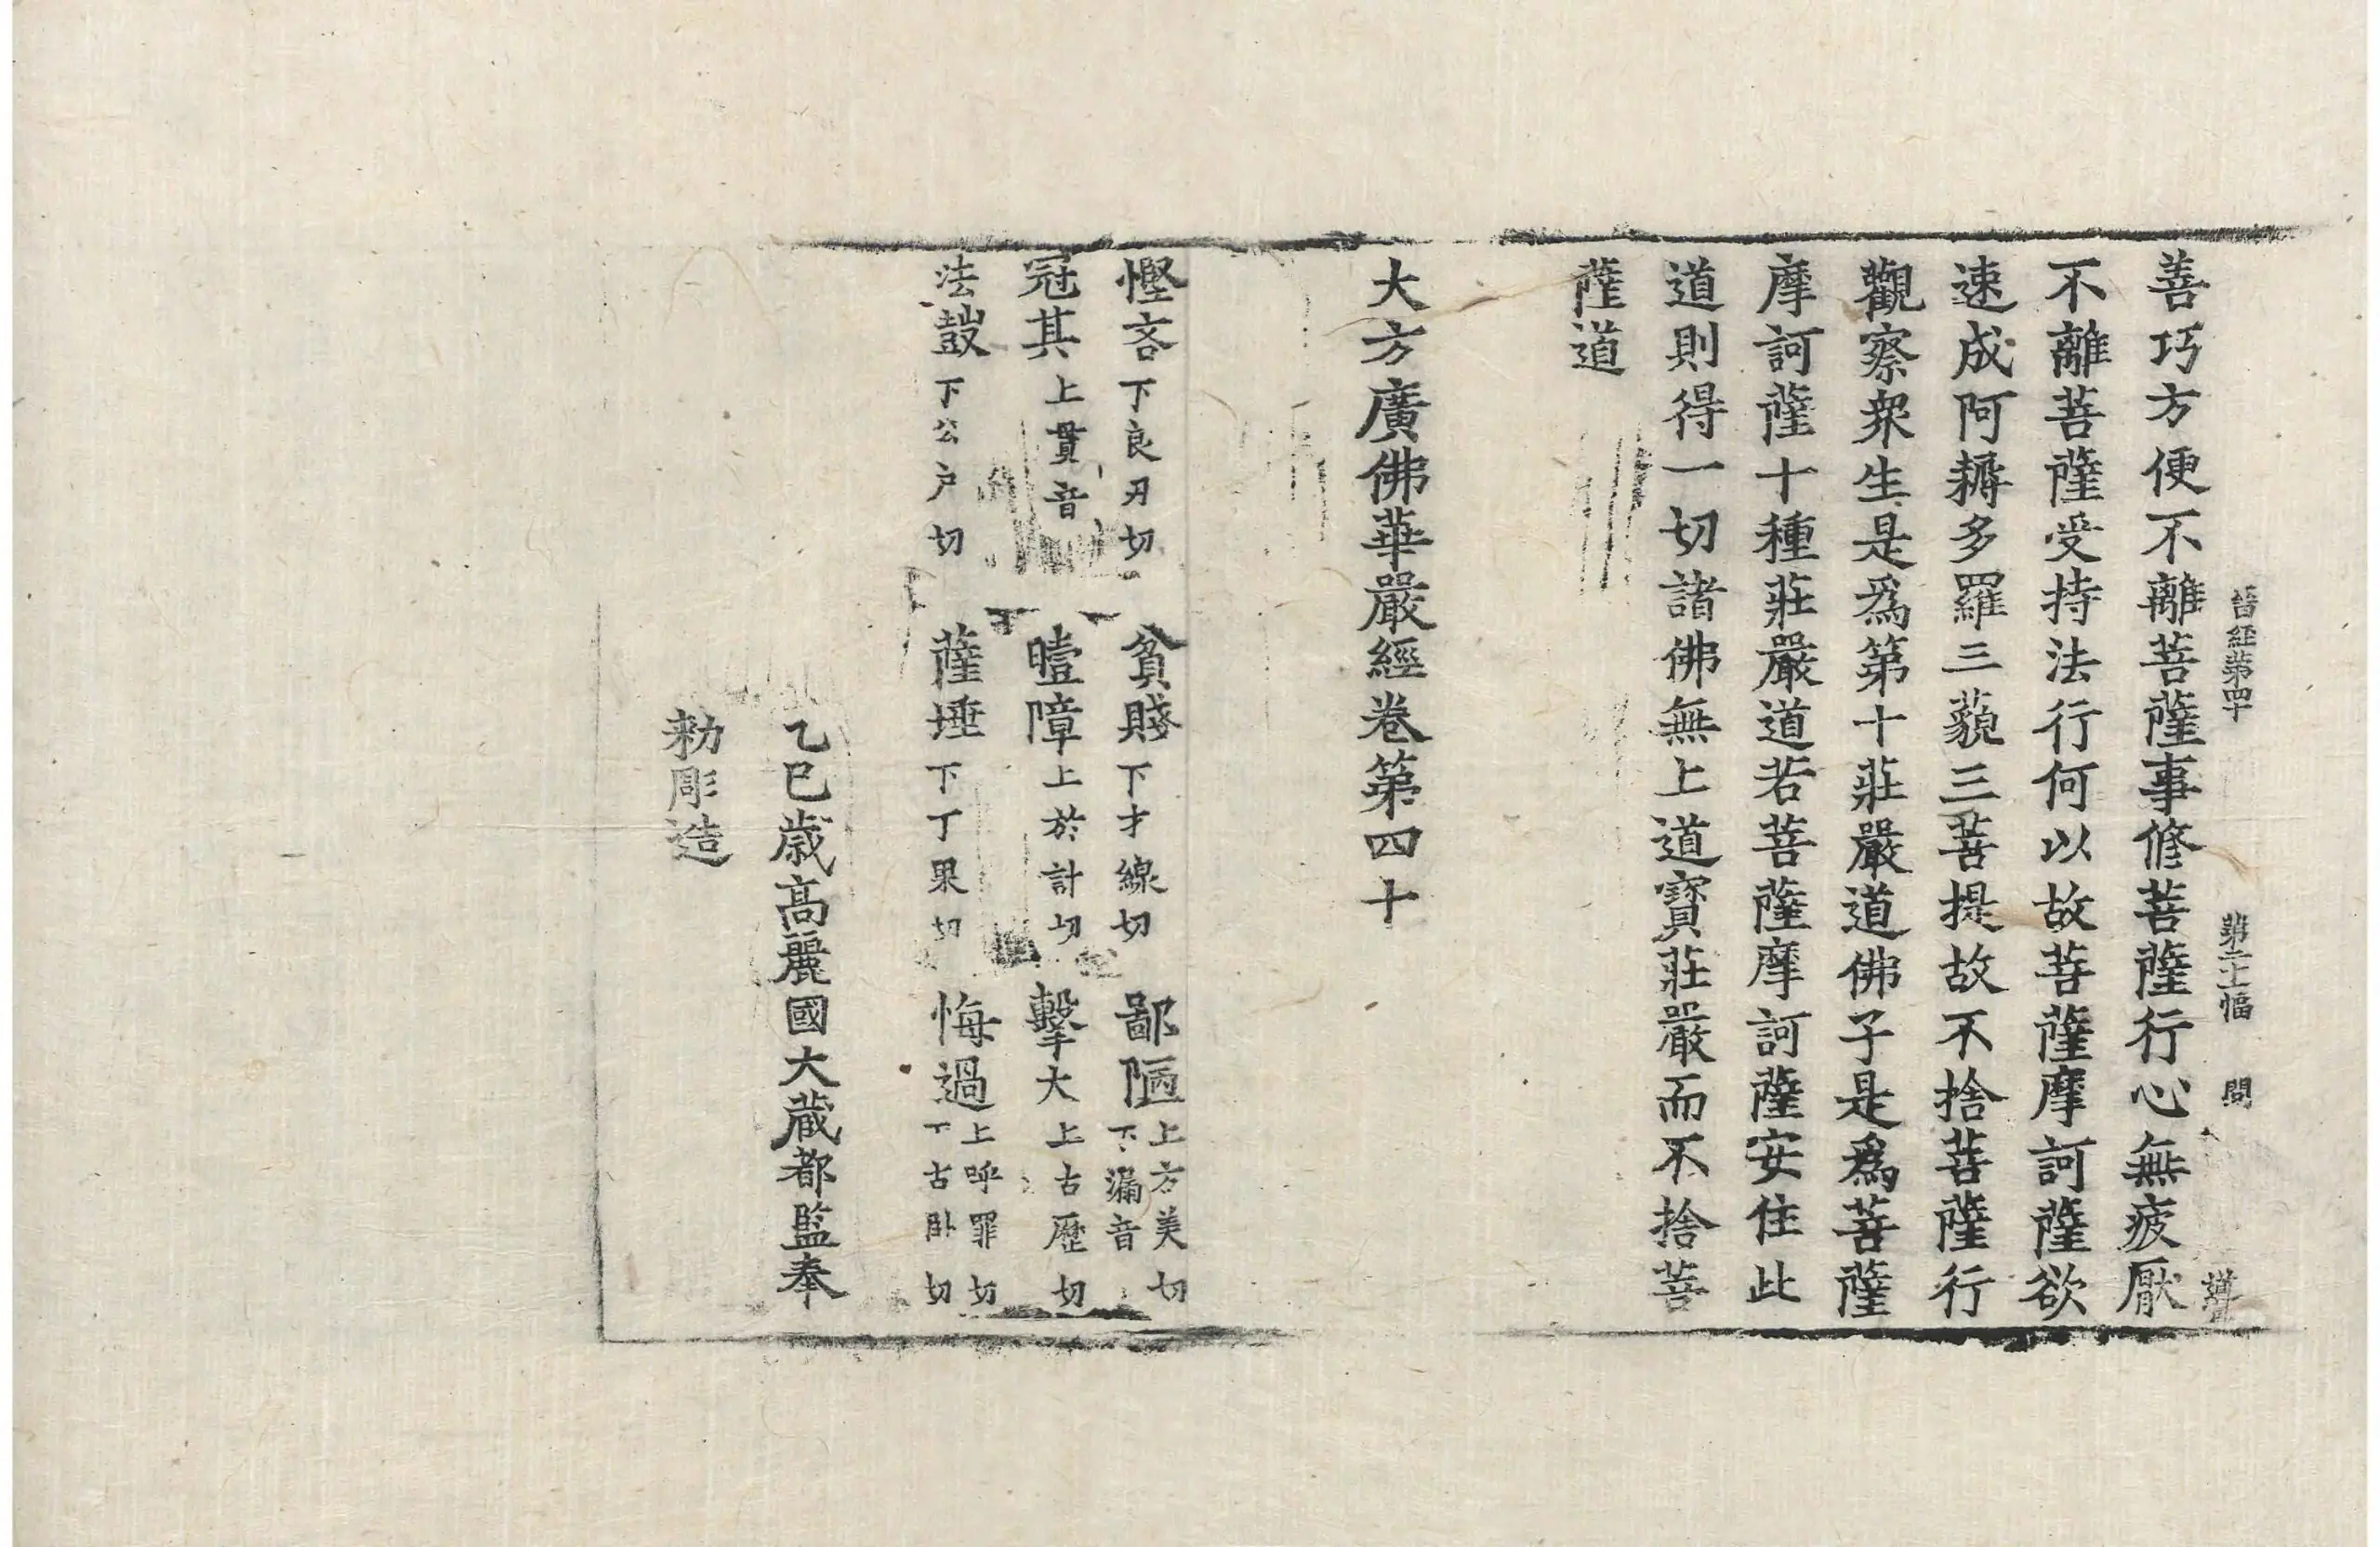 晉経第四十 第二十幅 問
善巧方便不離菩薩事修菩薩行心無疲厭
不離菩薩受持法行何以故菩薩摩訶薩欲
速成阿耨多羅三藐三菩提故不捨菩薩行
觀察衆生是爲第十莊嚴道佛子是爲菩薩
摩訶薩十種莊嚴道若菩薩摩訶薩安住此
道則得一切諸佛無上道寶莊嚴而不捨菩
薩道
大方廣佛華嚴經卷第四十
慳吝下良刃切 貧賤下才線切 鄙陋上方美切下漏音
冠其上貫音 曀障上於計切 擊大上古歷切
法鼓下公户切 薩埵下丁果切 悔過上呼罪切下古卧切
乙巳歳高麗國大藏都監奉
勑彫造